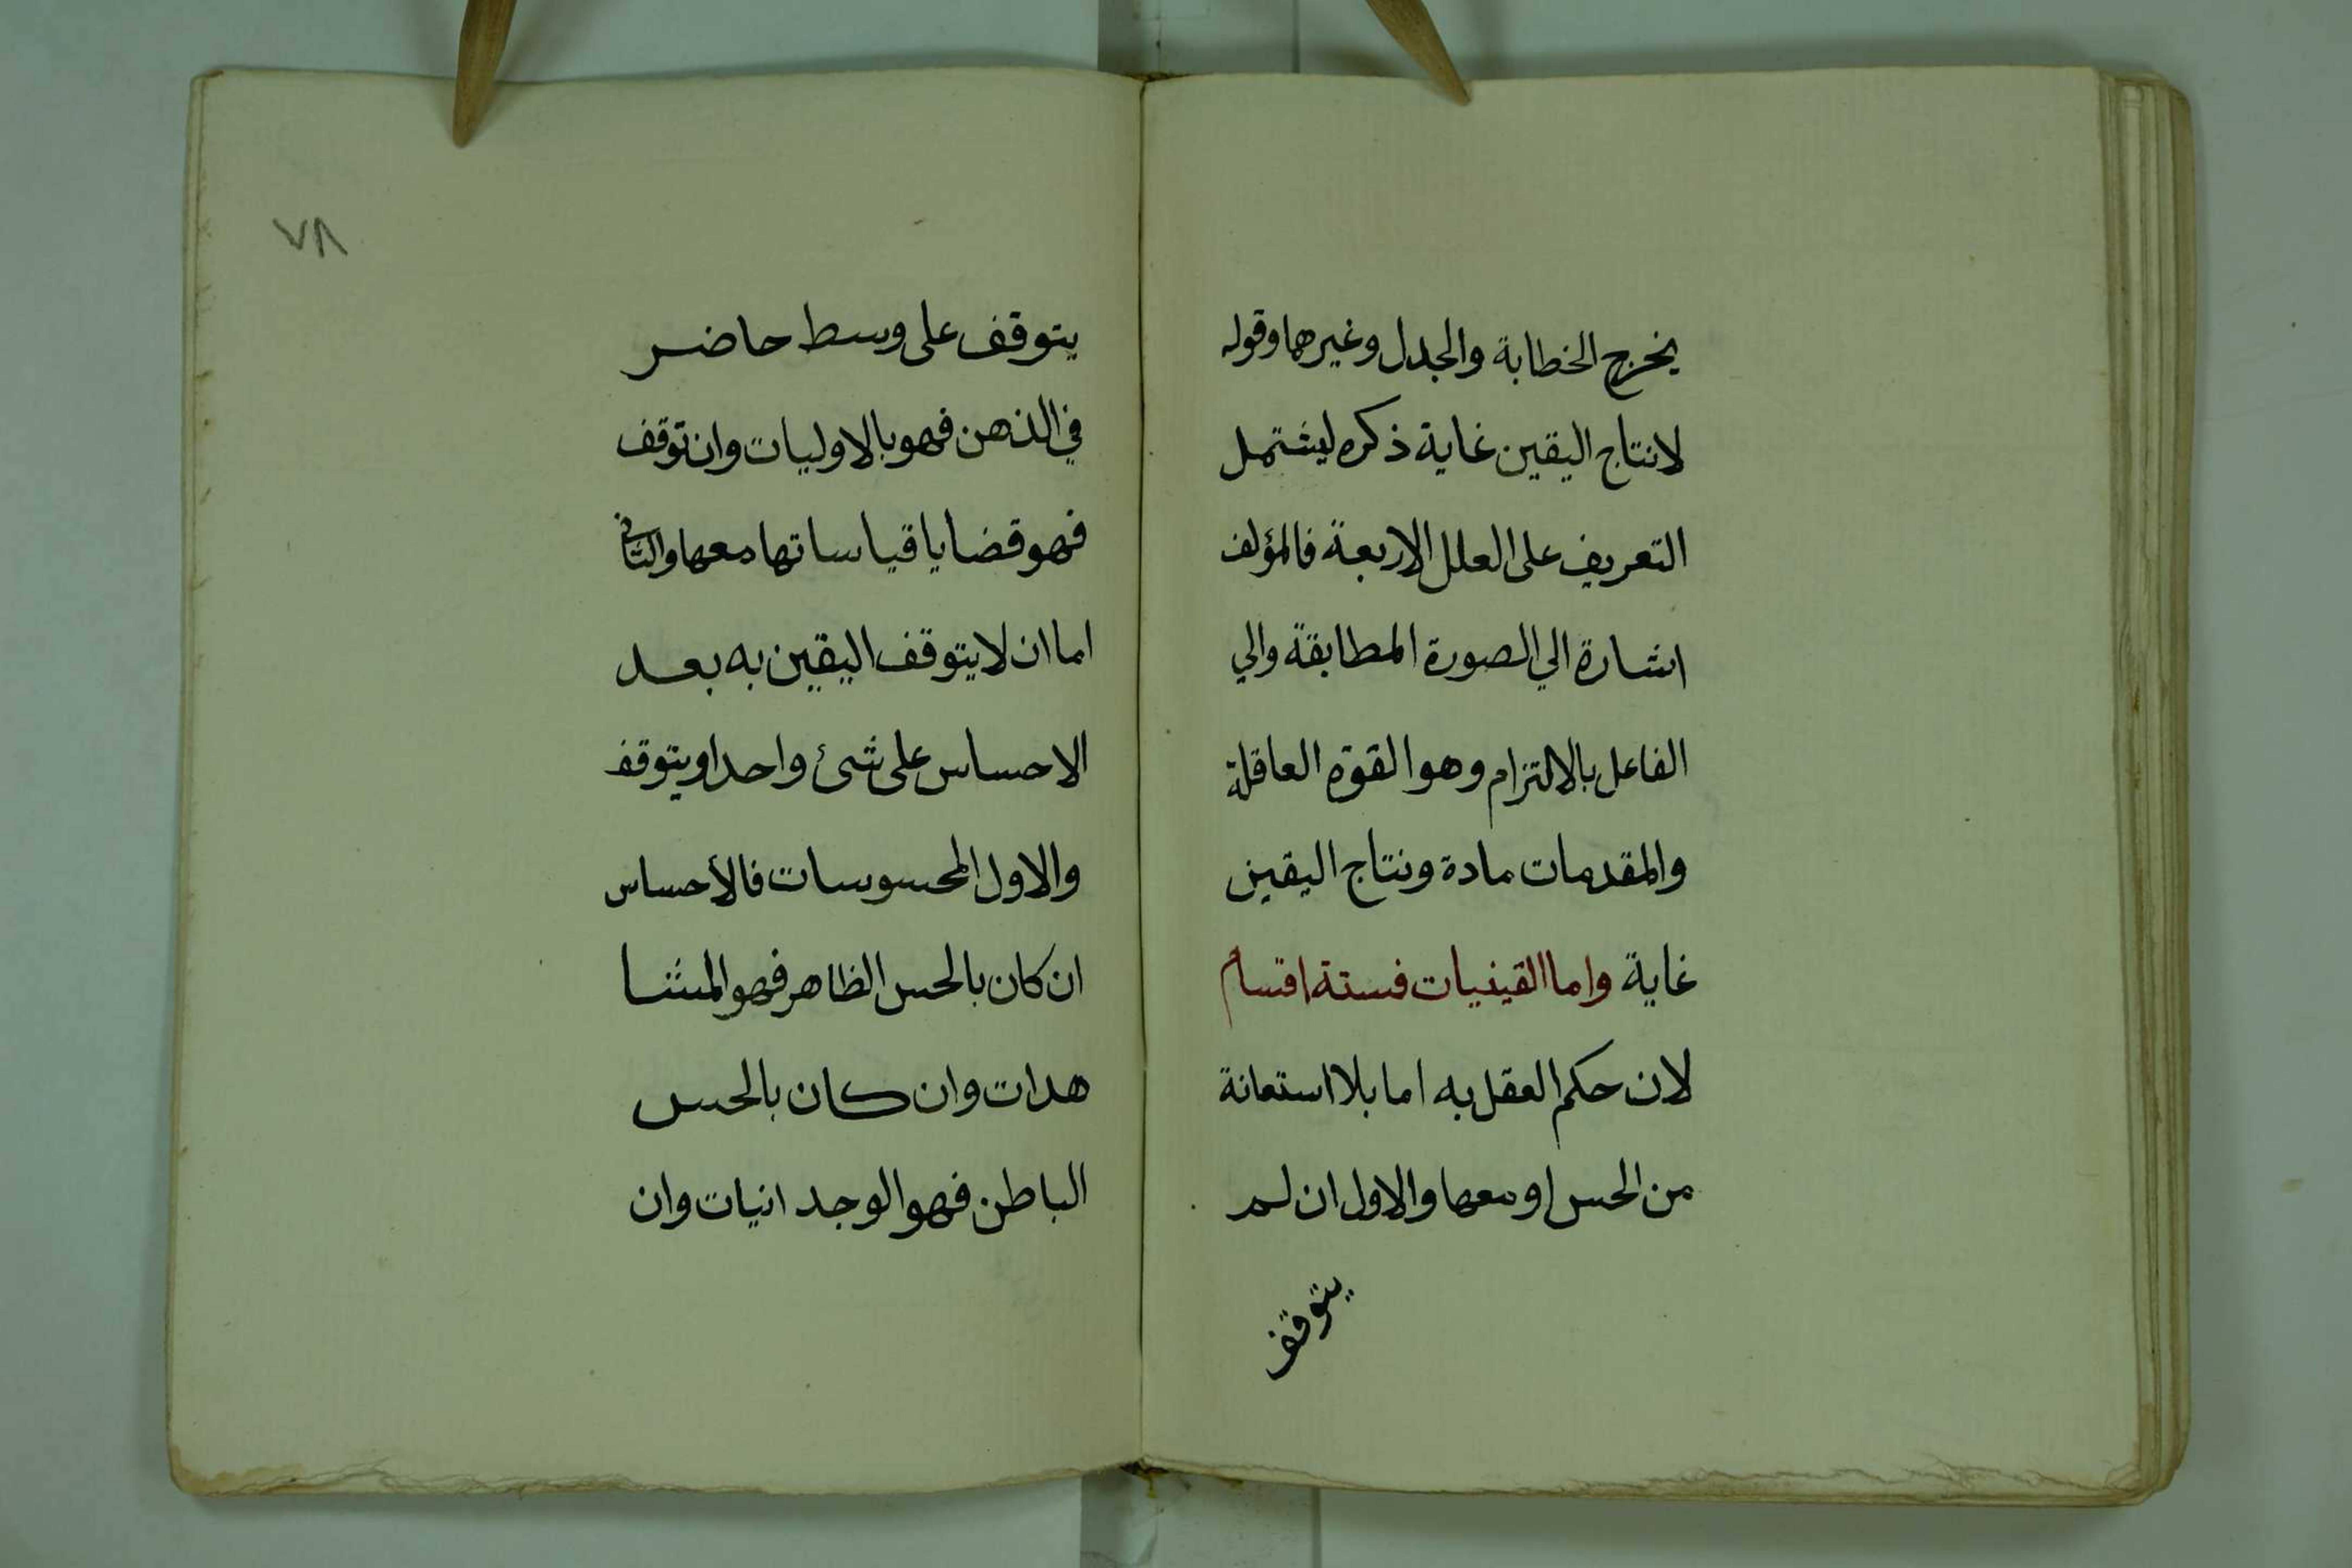 يخرج الخطابة والجدل وغيرهما وقوله
لانتاج اليقين غاية ذكره ليشتمل
التعريف على العلل الاربعة فالمؤلف
اشارة الي الصورة المطابقة والي
الفاعل بالالتزام وهو القوة العاقلة
والمقدمات مادة ونتاج اليقين
غاية واما القينيات فستة اقسام
لان حكم العقل به اما بلا استعانة
من الحس او معها والاول ان لم
يتوقف
٧٨
يتوقف على وسط حاضر
في الذهن فهو بالاوليات وان توقف
فهو قضايا قياساتها معها والثاني
اما ان لا يتوقف اليقين به بعد
الاحساس على شئ واحد او يتوقف
والاول المحسوسات فالأحساس
ان كان بالحس الظاهر فهو المشا
هدات وان كان بالحس
الباطن فهو الوجد انيات وان